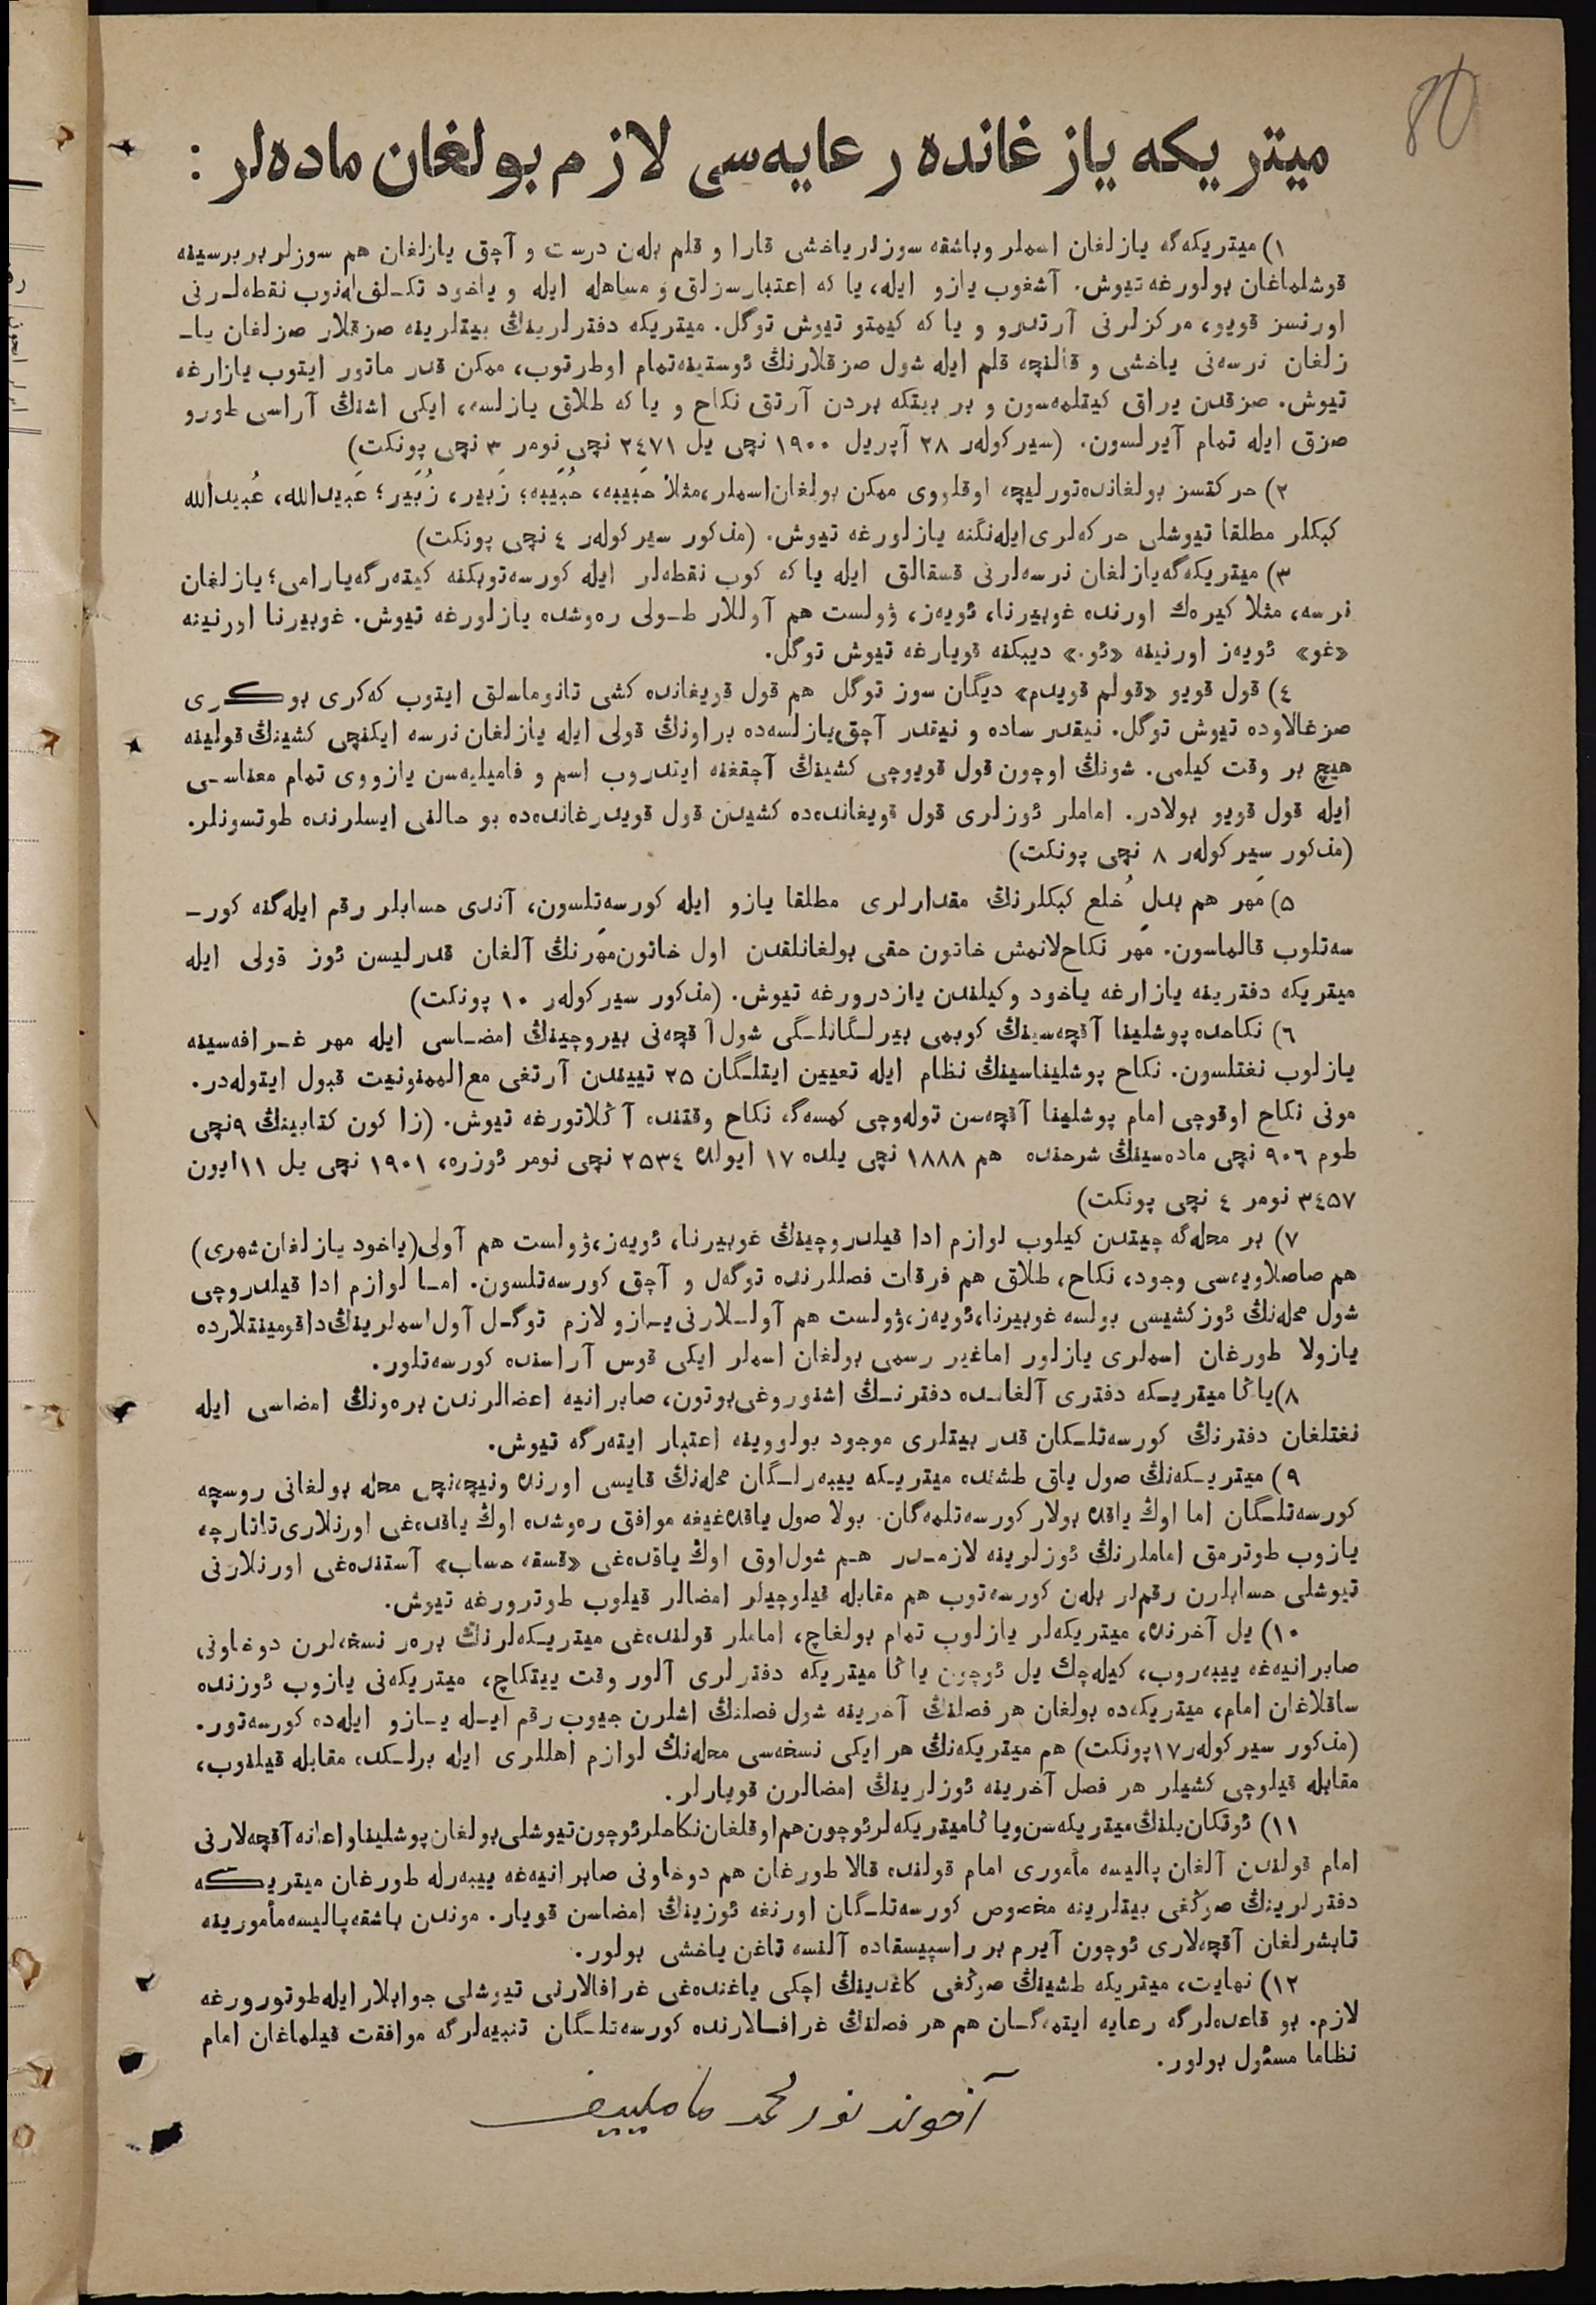 80
ميتريكه يازغانده رعايه‌سى لازم بولغان ماده‌لر :
١) ميتريكه‌گه يازلغان اسملر و باشقه سوزلر ياخشى قارا و قلم بله‌ن درست و آچق يازلغان هم سوزلر بر برسينه
قوشلماغان بولورغه تيوش. آشغوب يازو ايله، يا كه اعتبارسزلق و مساهله ايله و ياخود تكـلف‌له‌نوب نقطه‌لـرنى
اورنسز قويو، مركزلرنى آرتدرو و يا كه كيمتو تيوش توگل. ميتريكه دفترلرينڭ بيتلرينه صزقلار صزلغان يا‍ـ
زلغان نرسه‌نى ياخشى و قالنچه قلم ايله شول صزقلارنڭ ئوستينه تمام اوطرتوب، ممكن قدر ماتور ايتوب يازارغه
تيوش. صزقدن يراق كيتلمه‌سون و بر بيتكه بردن آرتق نكاح و يا كه طلاق يازلسه، ايكى اشنڭ آراسى طورو
صزق ايله تمام آيرلسون. (سيركولەر ٢٨ آپريل ١٩٠٠ نچى يل ٢٤٧١ نچى نومر ٣ نچى پونكت)
٢) حركتسز بولغانده تورليچه اوقلووى ممكن بولغان اسملر، مثلا حَبيبه، حُبَيبه؛ زَبير، زُبَير؛ عَبيدالله، عُبيدالله
كبكلر مطلقا تيوشلى حركه‌لرى ايله‌نگنه يازلورغه تيوش. (مذكور سيركولەر ٤ نچى پونكت)
٣) ميتريكه‌گه يازلغان نرسه‌لرنى قسقالق ايله يا كه كوب نقطه‌لر ايله كورسه‌توبكنه كيته‌رگه يارامى؛ يازلغان
نرسه، مثلا كيره‌ك اورنده غوبيرنا، ئويه‌ز، ۋولست هم آوللار طـولى ره‌وشده يازلورغه تيوش. غوبيرنا اورنينه
«غو» ئويه‌ز اورنينه «ئو.» ديبكنه قويارغه تيوش توگل.
٤) قول قويو «قولم قويدم» ديگان سوز توگل هم قول قويغانده كشى تانوماسلق ايتوب كه‌كرى بوكرى
صزغالاوده تيوش توگل. نيقدر ساده و نيقدر آچق يازلسه‌ده براونڭ قولى ايله يازلغان نرسه ايكنچى كشينڭ قولينه
هيچ بر وقت كيلمى. شونڭ اوچون قول قويوچى كشينڭ آچقغنه ايتدروب اسم و فاميليه‌سن يازووى تمام معناسـى
ايله قول قويو بولادر. اماملر ئوزلرى قول قويغانده‌ده كشيدن قول قويدرغانده‌ده بو حالنى ايسلرنده طوتسونلر.
(مذكور سيركولەر ٨ نچى پونكت)
٥) مَهر هم بدلِ خُلع كبكلرنڭ مقدارلرى مطلقا يازو ايله كورسه‌تلسون، آندى حسابلر رقم ايله‌گنه كور‍ـ
سه‌تلوب قالماسون. مَهر نكاح‌لانمش خاتون حقى بولغانلقدن اول خاتون مَهرنڭ آلغان قدرليسن ئوز قولى ايله
ميتريكه دفترينه يازارغه ياخود وكيلندن يازدرورغه تيوش. (مذكور سيركولەر ١٠ پونكت)
٦) نكاحده پوشلينا آقچه‌سينڭ كوبمى بيرلـگانلـگى شول آقچه‌نى بيروچينڭ امضـاسى ايله مهر غـرافه‌سينه
يازلوب نغتلسون. نكاح پوشليناسينڭ نظام ايله تعيين ايتلـگان ٢٥ تييندن آرتغى مع‌الممنونيت قبول ايتوله‌در.
مونى نكاح اوقوچى امام پوشلينا آقچه‌سن توله‌وچى كمسه‌گه نكاح وقتنده آڭلاتورغه تيوش. (زاكون كتابينڭ ٩نچى
طوم ٩٠٦ نچى ماده‌سينڭ شرحنده هم ١٨٨٨ نچى يلده ١٧ ايولده ٢٥٣٤ نچى نومر ئوزره، ١٩٠١ نچى يل ١١ ايون
٣٤٥٧ نومر ٤ نچى پونكت)
٧) بر محله‌گه چيتدن كيلوب لوازم ادا قيلدروچينڭ غوبيرنا، ئويه‌ز، ۋولست هم آولى (ياخود يازلغان شهرى)
هم صاصلاويه‌سى وجود، نكاح، طلاق هم فرقات فصللرنده توگه‌ل و آچق كورسه‌تلسون. امـا لوازم ادا قيلدروچى
شول محله‌نڭ ئوز كشيسى بولسه غوبيرنا، ئويه‌ز، ۋولست هم آولـلارنى يـازو لازم توگـل آول اسملرينڭ داقومينتلارده
يازولا طورغان اسملرى يازلور اماغير رسمى بولغان اسملر ايكى قوس آراسنده كورسه‌تلور.
٨) ياڭا ميتريـكه دفترى آلغانـده دفترنـڭ اشنوروغى بوتون، صابرانيه اعضالرندن بره‌ونڭ امضاسى ايله
نغتلغان دفترنڭ كورسه‌تلـكان قدر بيتلرى موجود بولووينه اعتبار ايته‌رگه تيوش.
٩) ميتريـكه‌نڭ صول ياق طشنده ميتريـكه ييبه‌رلـگان محله‌نڭ قايسى اورنده و نيچه‌نچى محله بولغانى روسچه
كورسه‌تلـگان اما اوڭ ياقده بولار كورسه‌تلمه‌گان. بولا صول ياقده‌غيغه موافق ره‌وشده اوڭ ياقده‌غى اورنلارى تاتارچه
يازوب طوترمق اماملرنڭ ئوزلرينه لازمـدر هـم شول‌اوق اوڭ ياقده‌غى «قسقه حساب» آستنده‌غى اورنلارنى
تيوشلى حسابلرن رقم‌لر بله‌ن كورسه‌توب هم مقابله قيلوچيلر امضالر قيلوب طوترورغه تيوش.
١٠) يل آخرنده، ميتريكه‌لر يازلوب تمام بولغاچ، اماملر قولنده‌غى ميتريـكه‌لرنڭ بره‌ر نسخه‌لرن دوخاونى
صابرانيه‌غه ييبه‌روب، كيله‌چك يل ئوچون ياڭا ميتريكه دفترلرى آلور وقت ييتكاچ، ميتريكه‌نى يازوب ئوزنده
ساقلاغان امام، ميتريكه‌ده بولغان هر فصلنڭ آخرينه شول فصلنڭ اشلرن جيوب رقم ايـله يـازو ايله‌ده كورسه‌تور.
(مذكور سيركولەر ١٧ پونكت) هم ميتريكه‌نڭ هر ايكى نسخه‌سى محله‌نڭ لوازم اهللرى ايله برلـكده مقابله قيلنوب،
مقابله قيلوچى كشيلر هر فصل آخرينه ئوزلرينڭ امضالرن قويارلر.
١١) ئوتكان يلنڭ ميتريكه‌سن و ياڭا ميتريكه‌لر ئوچون هم اوقلغان نكاحلر ئوچون تيوشلى بولغان پوشلينا و اعانه آقچه‌لارنى
امام قولندن آلغان پاليسه مأمورى امام قولنده قالا طورغان هم دوخاونى صابرانيه‌غه ييبه‌رله طورغان ميتريكه
دفترلرينڭ صوڭغى بيتلرينه مخصوص كورسه‌تلـگان اورنغه ئوزينڭ امضاسن قويار. موندن باشقه پاليسه مأمورينه
تابشرلغان آقچه‌لارى ئوچون آيرم بر راسپيسقاده آلنسه تاغن ياخشى بولور.
١٢) نهايت، ميتريكه طشينڭ صوڭغى كاغدينڭ اچكى ياغنده‌غى غرافالارنى تيوشلى جوابلار ايله طوتورورغه
لازم. بو قاعده‌لرگه رعايه ايتمه‌گـان هم هر فصلنڭ غرافـالارنده كورسه‌تلـگان تنبيه‌لرگه موافقت قيلماغان امام
نظاما مسئول بولور.
آخوند نورمحمد ماملييف